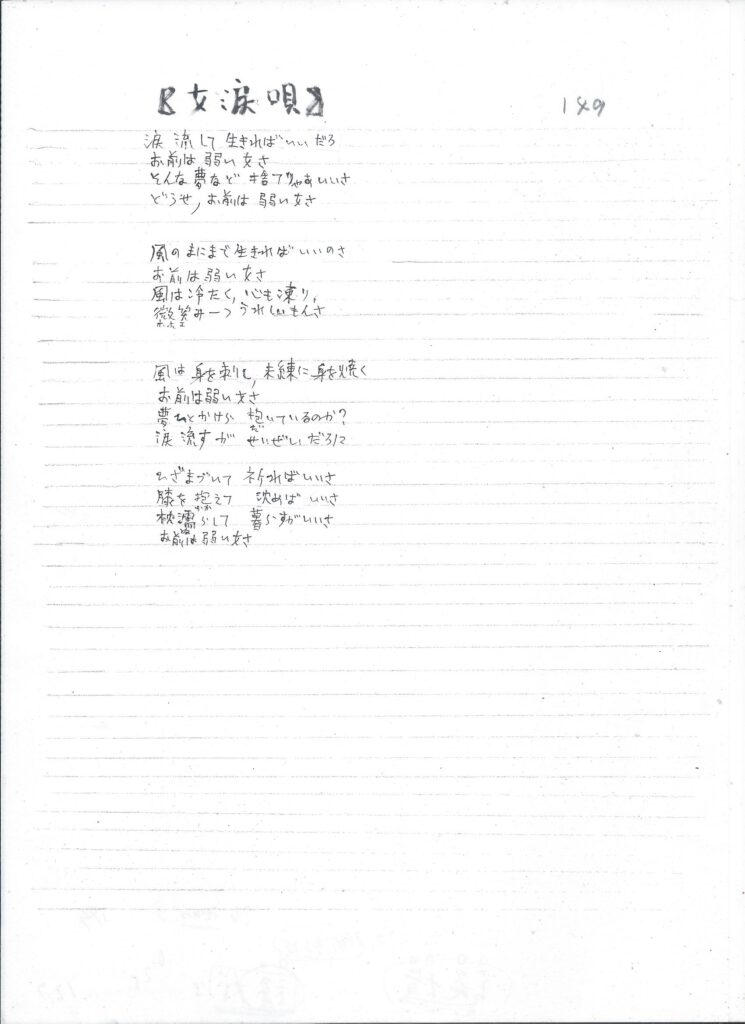 【女涙唄】
149
涙 流して 生きればいいだろ
お前は 弱い 女さ
そんな 夢など 捨てりゃあいいさ
どうせ, お前は 弱い 女さ
風のまにまで 生きれば いいのさ
お前は 弱い 女さ
風は 冷たく, 心も 凍り,
微笑み一つ うれしいもんさ
風は 身を 刺すし, 未練に 身を焼く
お前は弱い 女さ
夢ひとかけら 抱いているのか?
だ
涙 流すが せいぜいだろに
ひざまづいて 祈ればいいさ
膝を 抱えて 沈めば いいさ
かか
枕 濡らして 暮らすがいいさ
お前は 弱い 女さ